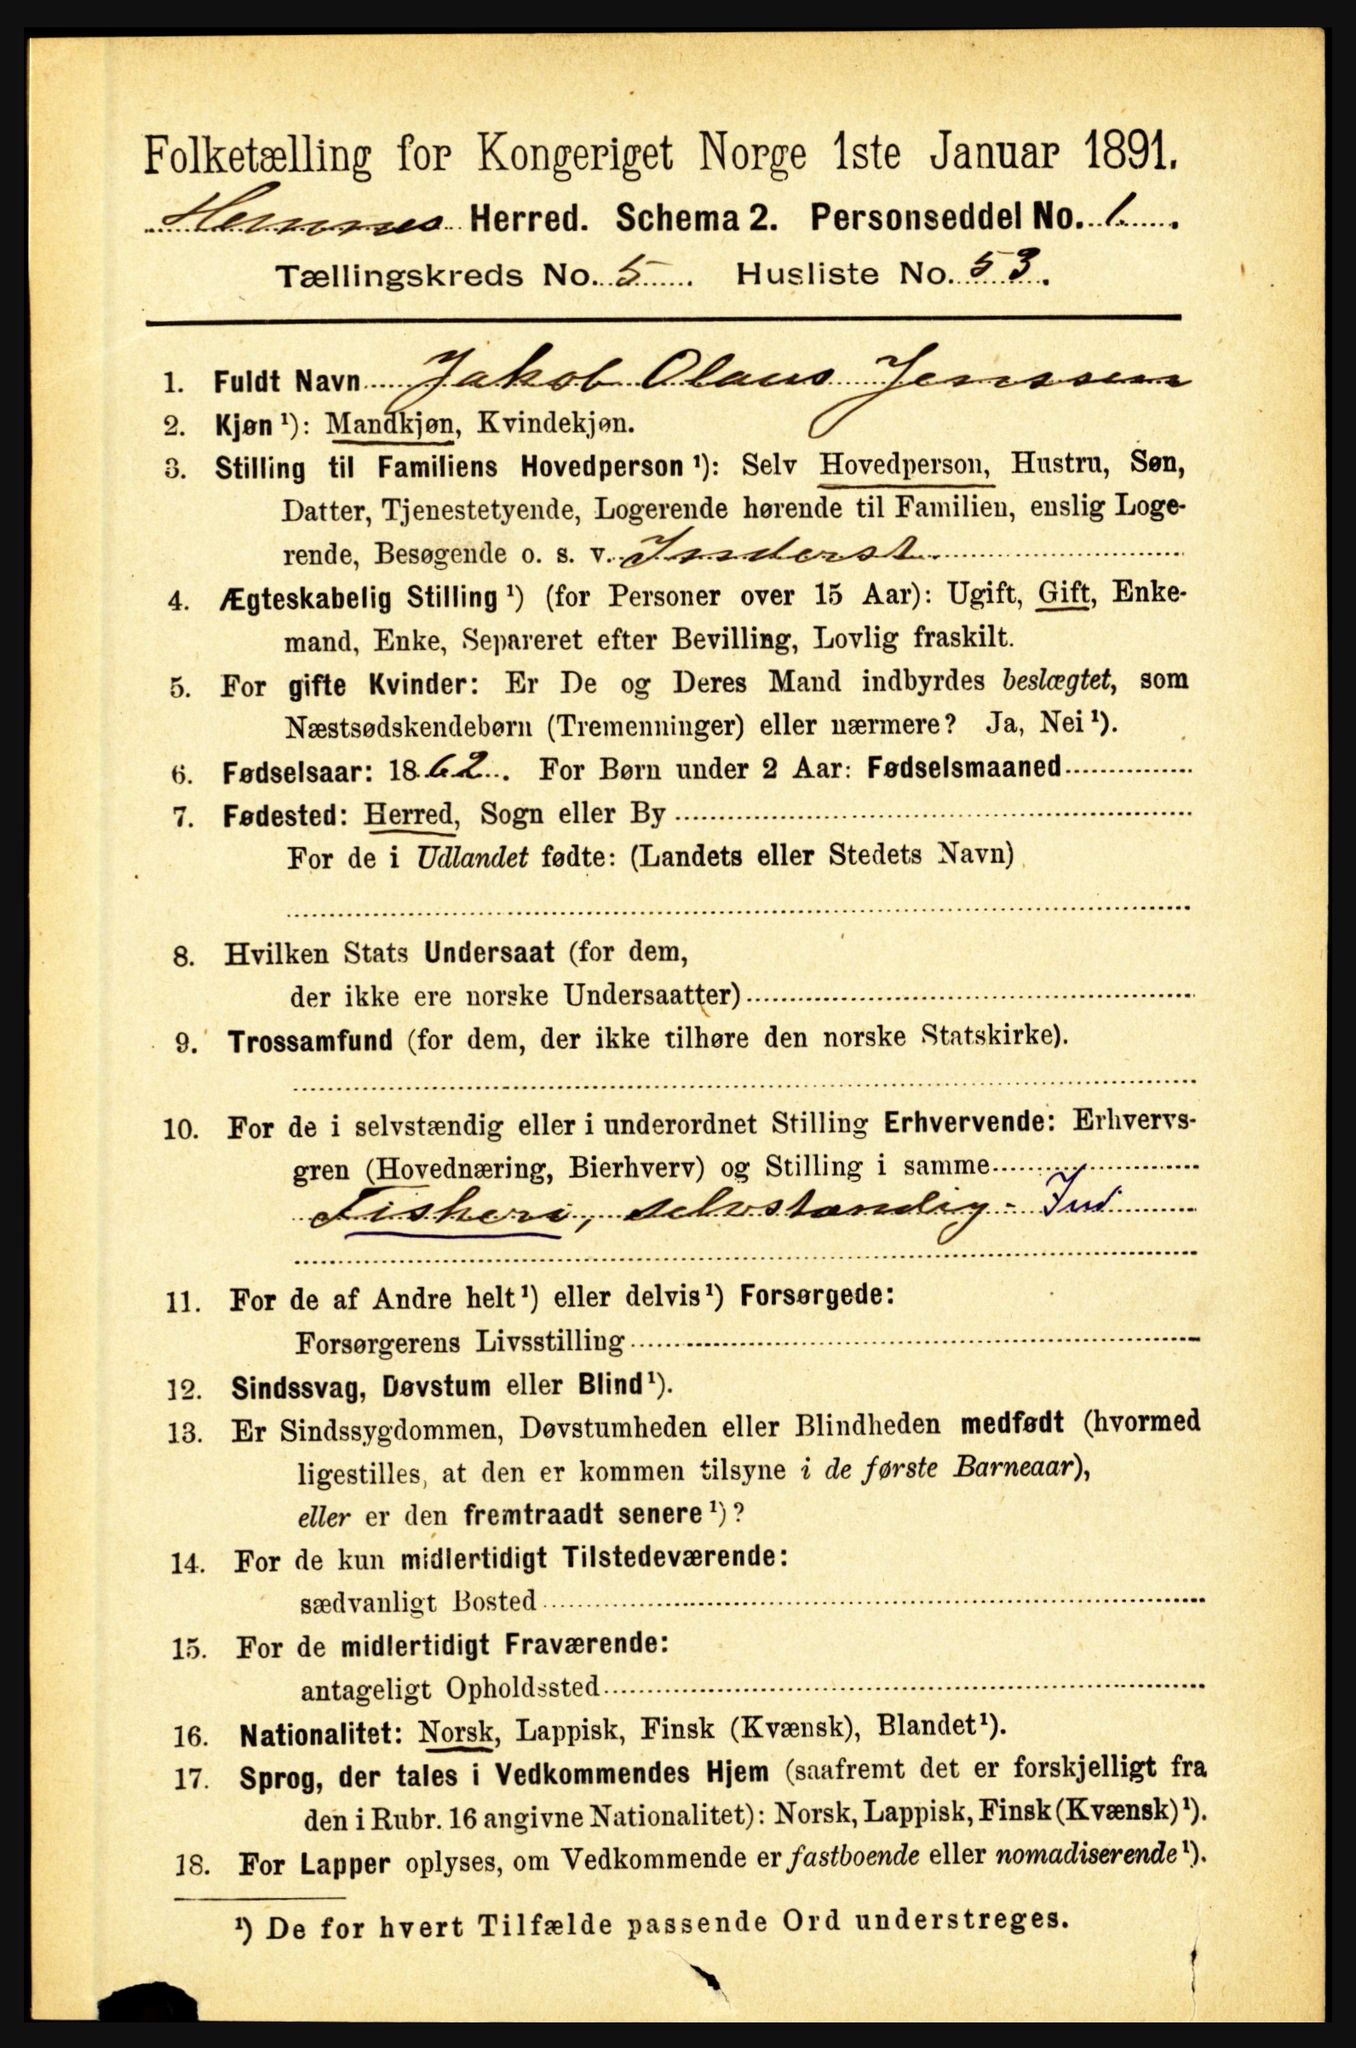 Folketælling for Kongeriget Norge 1ste Januar 1891.
Hemnes Herred. Schema 2. Personseddel No. 1.
Tællingskreds No. 5. Husliste No. 53.
1. Fuldt Navn Jakob Olaus Jenssen
2. Kjøn ¹): Mandkjøn, Kvindekjøn.
3. Stilling til Familiens Hovedperson ¹): Selv Hovedperson, Hustru, Søn,
Datter, Tjenestetyende, Logerende hørende til Familien, enslig Loge-
rende, Besøgende o. s. v. Inderst.
4. Ægteskabelig Stilling ¹) (for Personer over 15 Aar): Ugift, Gift, Enke-
mand, Enke, Separeret efter Bevilling, Lovlig fraskilt.
5. For gifte Kvinder: Er De og Deres Mand indbyrdes beslægtet, som
Næstsødskendebørn (Tremenninger) eller nærmere? Ja, Nei ¹).
6. Fødselsaar: 1862. For Børn under 2 Aar: Fødselsmaaned
7. Fødested: Herred, Sogn eller By
For de i Udlandet fødte: (Landets eller Stedets Navn)
8. Hvilken Stats Undersaat (for dem,
der ikke ere norske Undersaatter)
9. Trossamfund (for dem, der ikke tilhøre den norske Statskirke).
10. For de i selvstændig eller i underordnet Stilling Erhvervende: Erhvervs-
gren (Hovednæring, Bierhverv) og Stilling i samme
Fiskeri, selvstændig - Ind
11. For de af Andre helt ¹) eller delvis ¹) Forsørgede:
Forsørgerens Livsstilling
12. Sindssvag, Døvstum eller Blind ¹).
13. Er Sindssygdommen, Døvstumheden eller Blindheden medfødt (hvormed
ligestilles, at den er kommen tilsyne i de første Barneaar),
eller er den fremtraadt senere ¹)?
14. For de kun midlertidigt Tilstedeværende:
sædvanligt Bosted
15. For de midlertidigt Fraværende:
antageligt Opholdssted
16. Nationalitet: Norsk, Lappisk, Finsk (Kvænsk), Blandet ¹).
17. Sprog, der tales i Vedkommendes Hjem (saafremt det er forskjelligt fra
den i Rubr. 16 angivne Nationalitet): Norsk, Lappisk, Finsk (Kvænsk) ¹).
18. For Lapper oplyses, om Vedkommende er fastboende eller nomadiserende ¹).
¹) De for hvert Tilfælde passende Ord understreges.